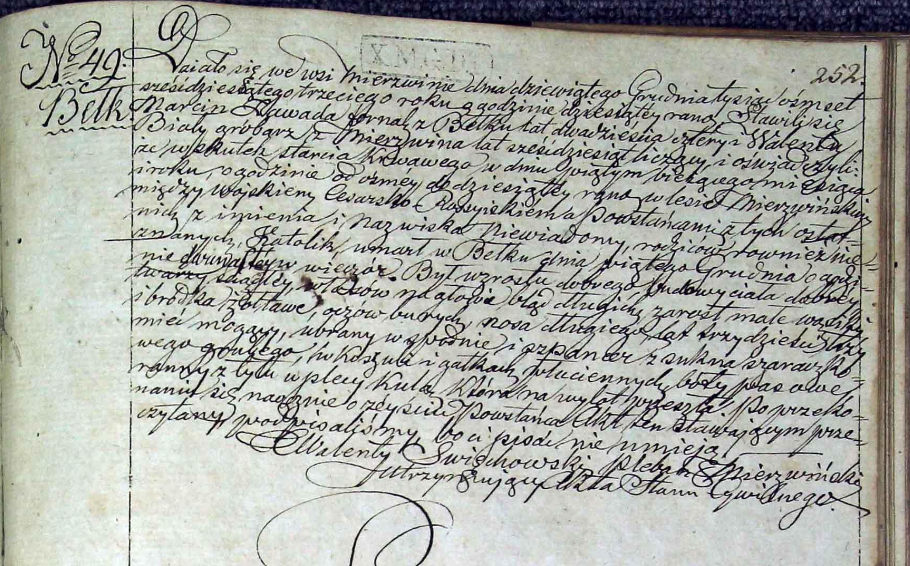 252.
Nº 49.
Bełk.
Działo się we wsi Mierzwinie dnia dziewiątego Grudnia tysiąc ośmset
sześćdziesiątego trzeciego roku o godzinie dziesiątey rano. Stawili się
Marcin Zawada fornal z Bełku lat dwadzieścia cztery i Walenty
Biały grobarz z Mierzwina lat sześćdziesiąt liczący i oświadczyli:
że w skutek starcia krwawego w dniu piątym bieżącego miesiąca
i roku o godzinie od ósmey do dziesiątey rano w lesie Mierzwińskim
między wojskiem Cesarsko Rossyiskiem a powstańcami z tych
nich z imienia i nazwiska niewiadomy, rodziców również nie-
znanych, Katolik, umarł w Bełku dnia piątego Grudnia o godzi-
nie w wieczór. Był wzrostu dobrego, budowy ciała dobrey,
twarzy ściągłey, włosów na głowie bląd długich, zarost małe wąsiki
i bródka żółtawe, oczów burych, nosa długiego, lat trzydzieści
mieć mogący, ubrany w spodnie i szpancer z sukna szaraczko-
wego grubego, w koszuli i gatkach płuciennych, bosy,
ranny z tyłu w plecy kulą, która na wylot przeszła. Po przeko-
naniu się naocznie o zeyściu Powstańca Akt ten stawającym prze-
czytany podpisaliśmy, bo ci pisać nie umieją.
Walenty Święchowski Pleban Mierzwiński
Utrzymujący Akta Stanu Cywilnego.